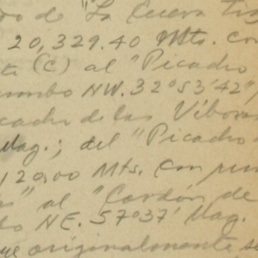 do de "La Cueva
20,329.40 Mts. con
(C) al "Picacho
rumbo NW. 32°53'42"
de las Víboras
Mag.; del "Picacho
12000 Mts. con
" al "Cordón de
NE. 57°37' Mag.
que originalmente se